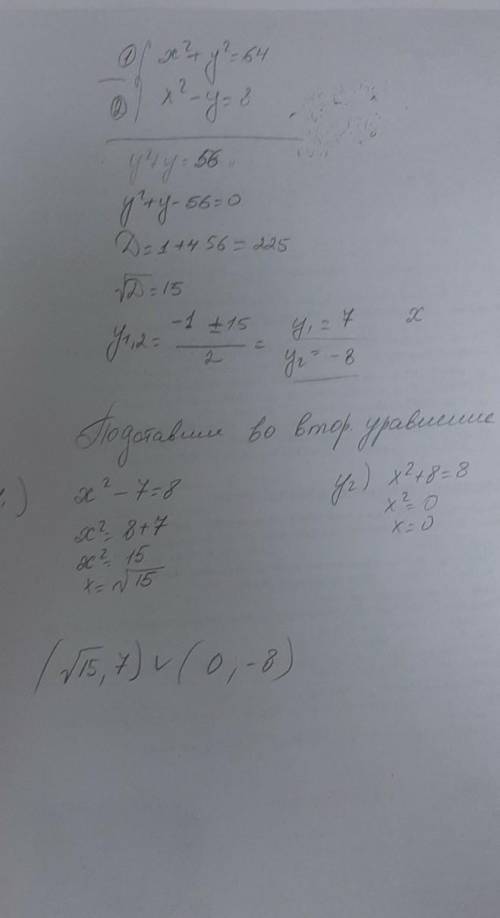 ① { x² + y² = 64
② { x² - y = 8
y² + y = 56
y² + y - 56 = 0
D = 1 + 4 56 = 225
√D = 15
y1,2 = (-1 ± 15) / 2 = y1 = 7 x
y2 = -8
Подставим во втор. уравнение
x² - 7 = 8 y2) x² + 8 = 8
x² = 8 + 7 x² = 0
x² = 15 x = 0
x = √15
(√15, 7) ∨ (0, -8)